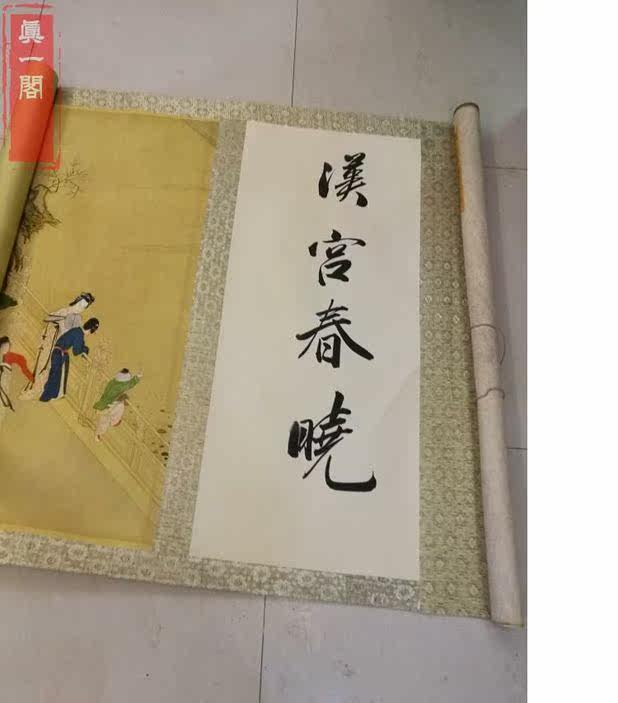 真一閣
漢宮春曉